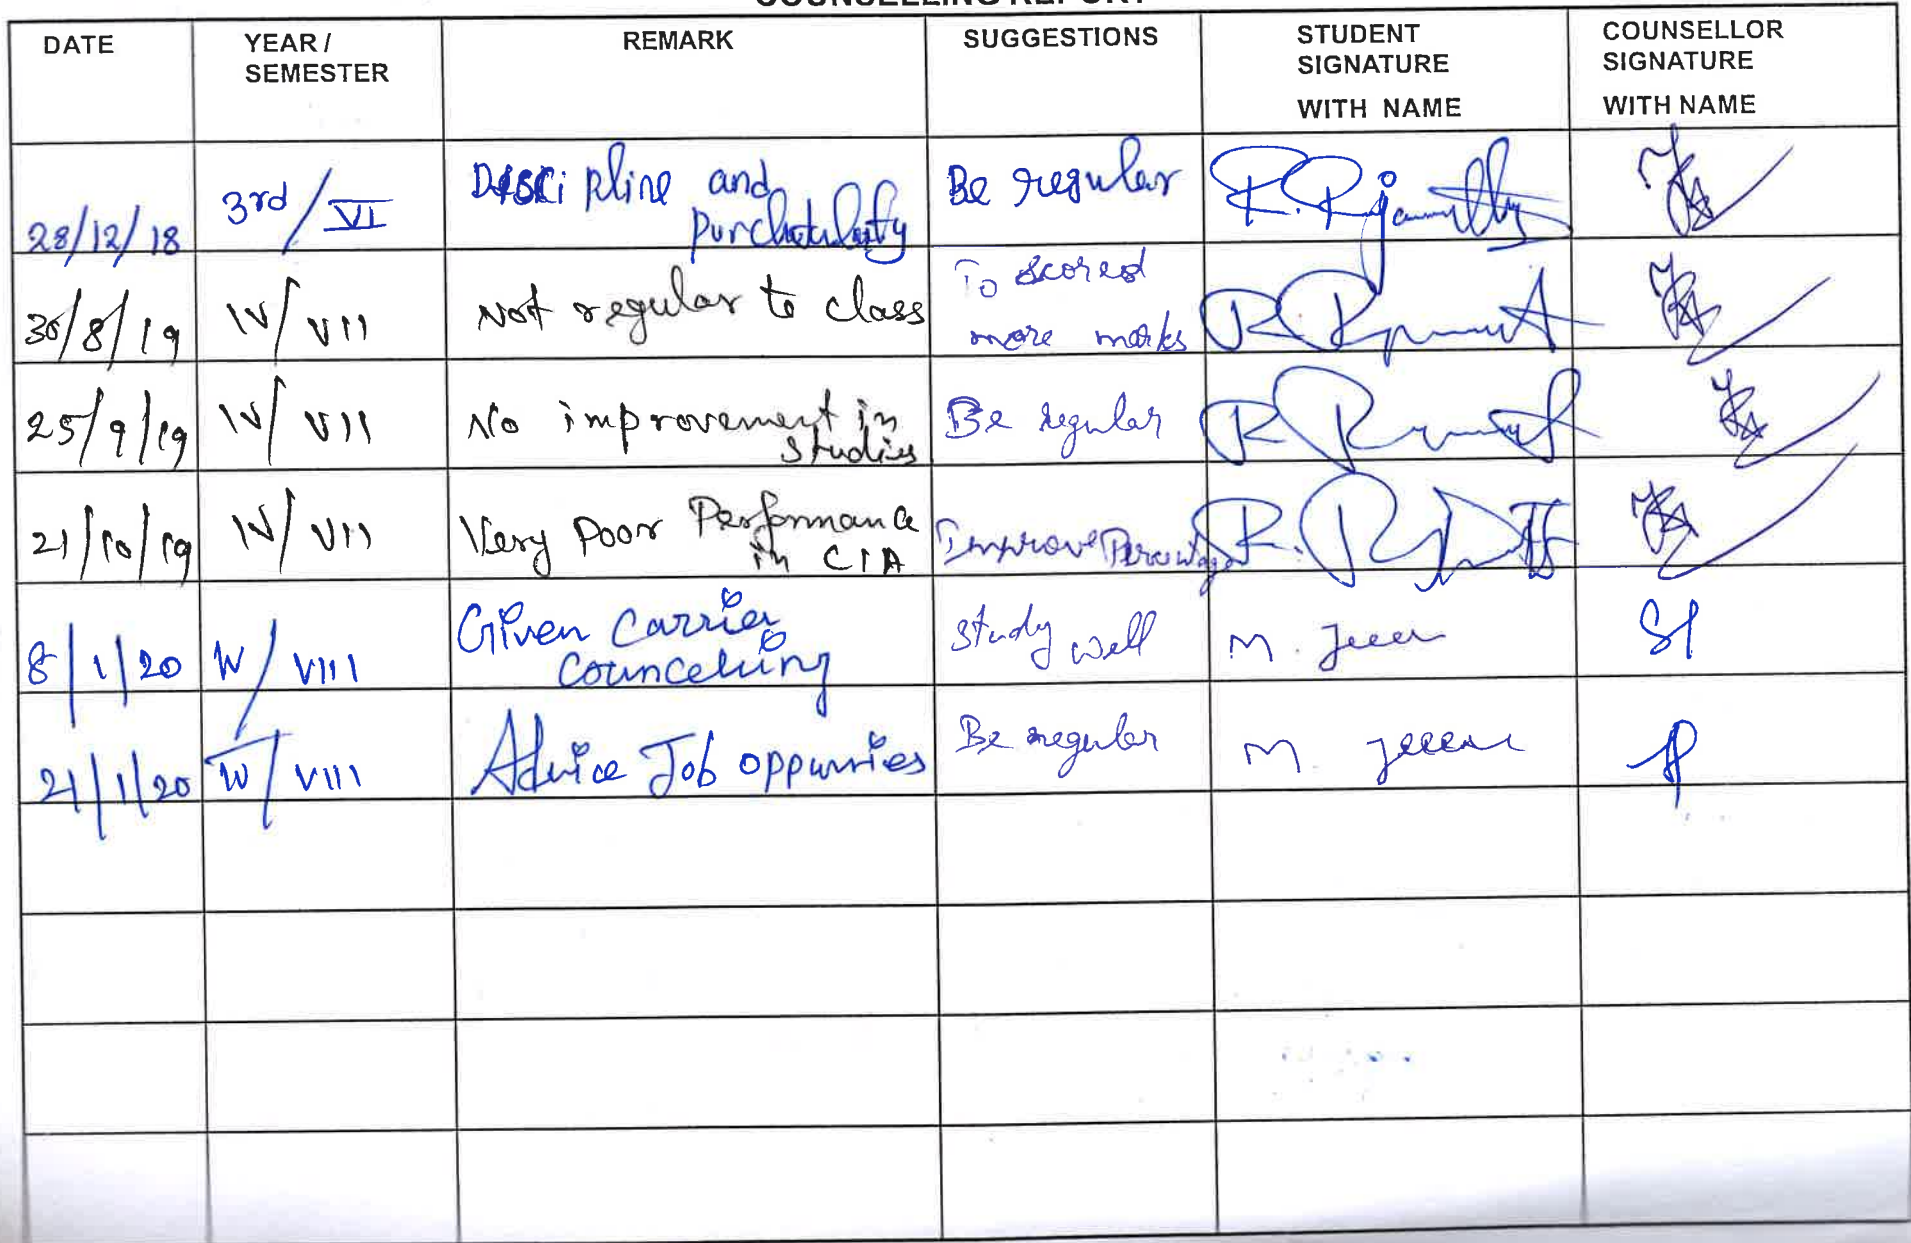 COUNSELLING REPORT
DATE YEAR / SEMESTER REMARK SUGGESTIONS STUDENT SIGNATURE WITH NAME COUNSELLOR SIGNATURE WITH NAME
28/12/18 3rd/VI Discipline and Be regular
30/8/19 IV/VII Not regular to class To scored more marks
25/9/19 IV/VII No improvement in studies Be regular
21/10/19 IV/VII Very Poor Performance in CIA Improve
8/1/20 IV/VIII Given Carrier Counceling Study well M.
21/1/20 IV/VIII Advice Job Be regular M.